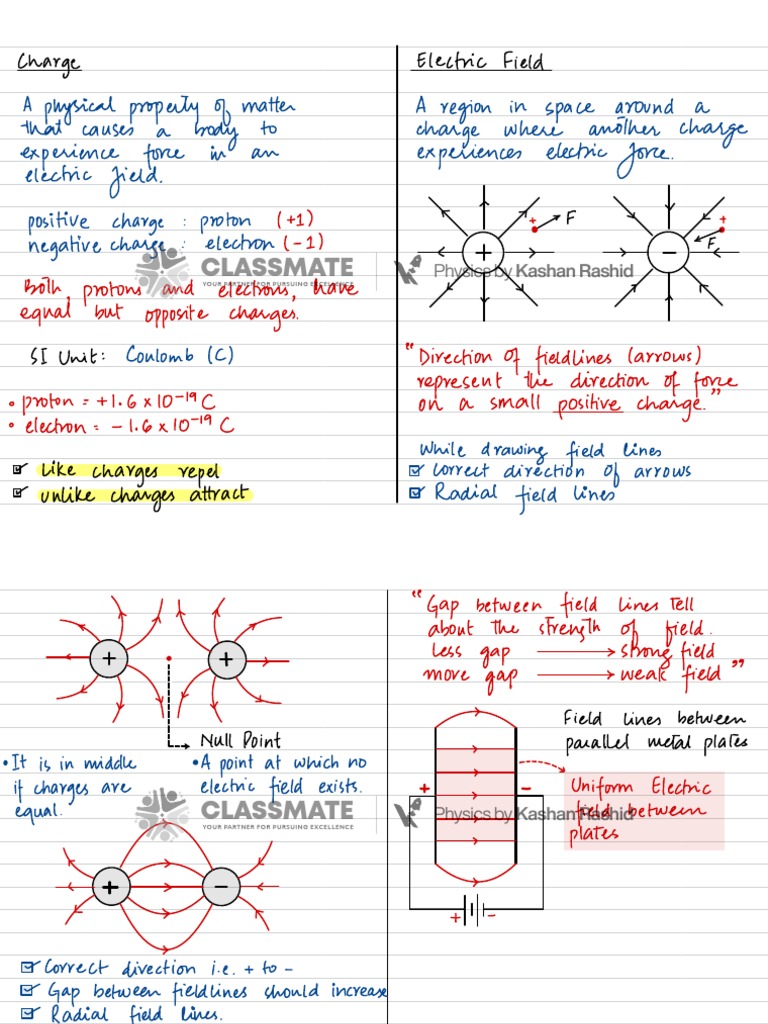 Charge
A physical property of matter
that causes a body to
experience force in an
electric field.
positive charge : proton (+1)
negative charge : electron (-1)
Both, protons and electrons, have
equal but opposite charges.
SI Unit: Coulomb (C)
• proton = +1.6 × 10⁻¹⁹ C
• electron = -1.6 × 10⁻¹⁹ C
Like charges repel
unlike charges attract
CLASSMATE
YOUR PARTNER FOR PURSUING EXCELLENCE
Physics by Kashan Rashid
Electric Field
A region in space around a
charge where another charge
experiences electric force.
+ F
+
-
+
F
"Direction of fieldlines (arrows)
represent the direction of force
on a small positive charge."
While drawing field lines
Correct direction of arrows
Radial field lines
+ +
Null Point
• It is in middle
if charges are
equal.
• A point at which no
electric field exists.
CLASSMATE
YOUR PARTNER FOR PURSUING EXCELLENCE
Physics by Kashan Rashid
+ -
Correct direction i.e. + to -
Gap between fieldlines should increase
Radial field lines.
"Gap between field lines tell
about the strength of field.
less gap → strong field
more gap → weak field"
Field lines between
parallel metal plates
+ -
Uniform Electric
field between
plates
+ -